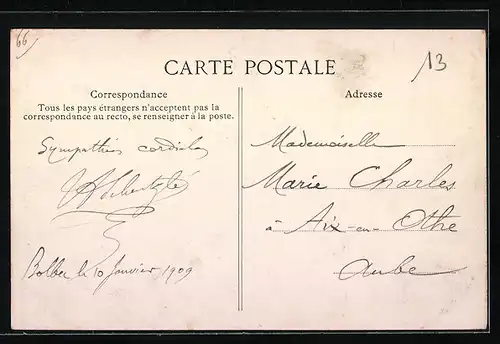 66
13
CARTE POSTALE
Correspondance
Tous les pays étrangers n'acceptent pas la
correspondance au recto, se renseigner à la poste.
Sympathies cordiales
Bolbec le 10 Janvier 1909
Adresse
Mademoiselle
Marie Charles
à Aix-en-Othe
Aube